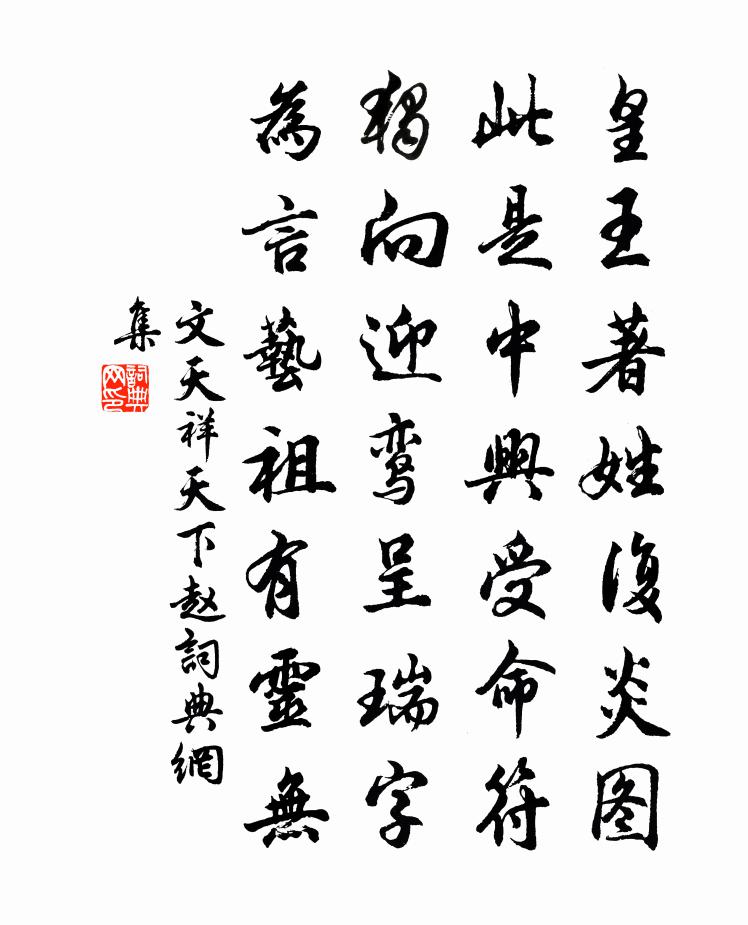 皇王著姓復炎图
此是中興受命符
獨向迎鸾呈瑞字
為言藝祖有靈無
文天祥天下赵詞典網
集
詞典
网印